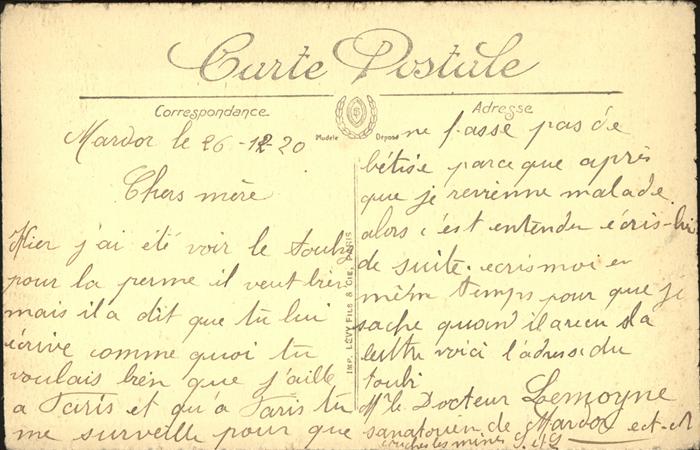 Carte Postale
Correspondance
Mardor le 26-12-20
Chers mère
Hier j'ai été voir le toubi
pour la perme il veut bien
mais il a dit que tu lui
écrive comme quoi tu
voulais bien que j'aille
a Paris et qu'a Paris tu
me surveille pour que
Modèle Déposé
IMP. LÉVY FILS & CIE, PARIS
Adresse
ne fasse pas de
bétise parce que après
que je revienne malade
alors c'est entendu écris-lui
de suite. ecris moi en
mêm temps pour que je
sache quand il a recu la
lettre voici l'adresse du
toubi
Mr le Docteur Lemoyne
sanatorien de Mardor
couches les mines S. et L